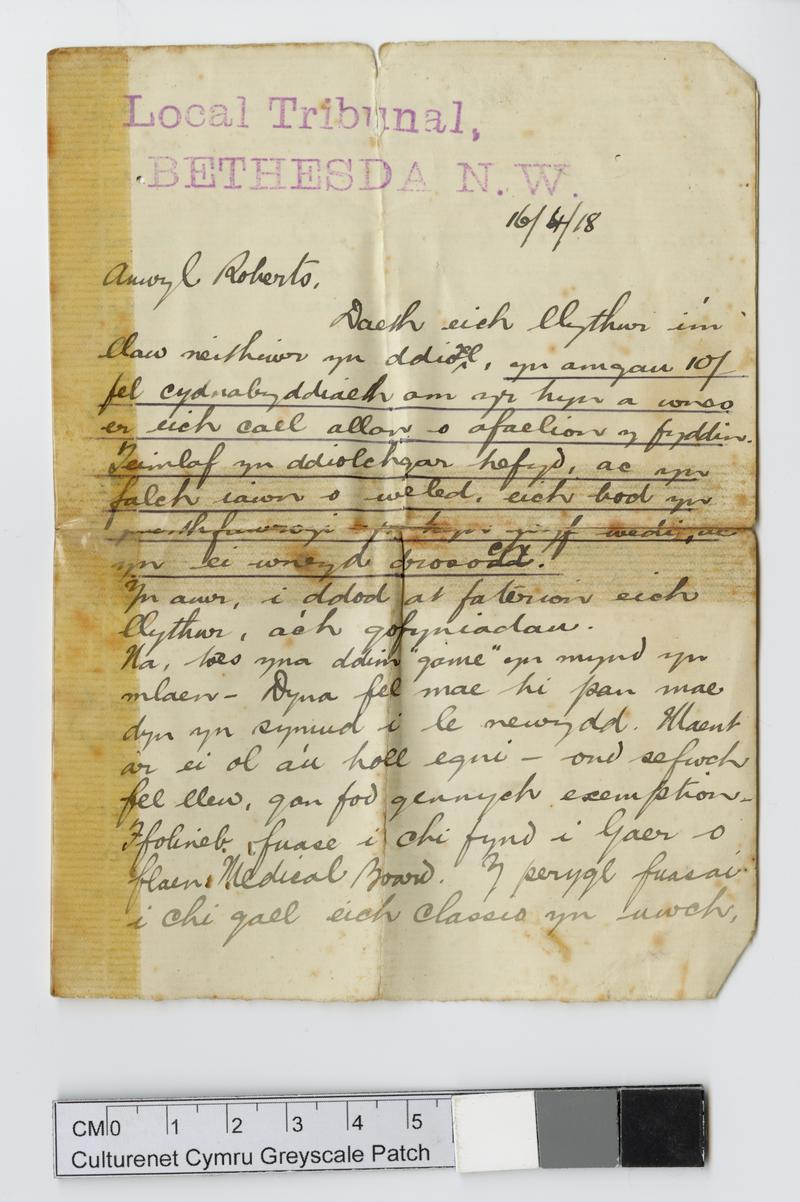 Local Tribunal,
BETHESDA N.W.
16/4/18
Anwyl Roberts.
Daeth eich llythur i'm
llaw neithiwr yn ddiogel, yn amgau 10/
fel cydnabyddiaeth am yr hyn a wneo
er eich cael allan o afaelion y fyddin.
Teimlaf yn ddiolchgar hefyd, ac yn
falch iawn o weled, eich bod yn
yn hyn wedi, ac
yn ei wneyd drosodd.
Yn awr, i ddod at faterion eich
llythur, a'ch gofyniadau.
Na, toes yna ddim "game" yn mynd yn
mlaen - Dyna fel mae hi pan mae
dyn yn symud i le newydd. Maent
ar ei ol a'u holl egni - ond sefwch
fel llew, gan fod gennych exemption -
Ffolineb fuase i chi fynd i Gaer o
flaen Medical Board. Y perygl fuasai
i chi gael eich classio yn uwch,
CM 0 1 2 3 4 5
Culturenet Cymru Greyscale Patch